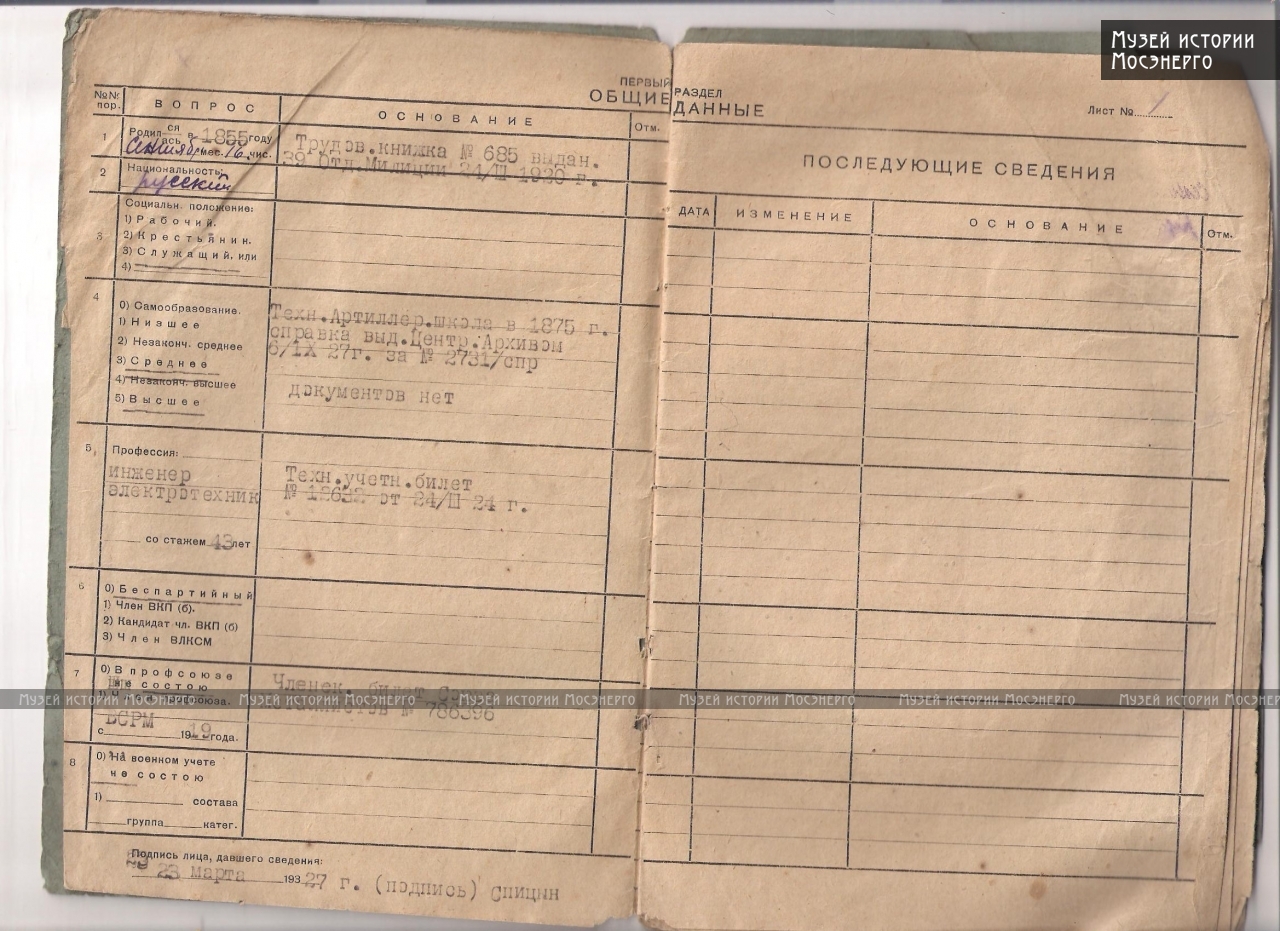 Музей истории
Мосэнерго
ПЕРВЫЙ РАЗДЕЛ
ОБЩИЕ ДАННЫЕ
Лист №
№№ пор.
ВОПРОС
ОСНОВАНИЕ
Отм.
1
Родился/ась в 1855 году
Сентября мес. 16 чис.
Трудов.книжка № 685 выдан.
39 Отд.Милиции 24/III 1920 г.
2
Национальность:
русский
3
Социальн. положение:
1) Рабочий.
2) Крестьянин.
3) Служащий, или
4)
4
0) Самообразование.
1) Низшее
2) Незаконч. среднее
3) Среднее
4) Незаконч. высшее
5) Высшее
Техн.Артиллер.школа в 1875 г.
справка выд.Центр.Архивом
6/IX 27г. за № 2731/спр
документов нет
5
Профессия:
инженер
электротехник
со стажем 43 лет
Техн.учетн.билет
№ 12632 от 24/III 24 г.
6
0) Беспартийный
1) Член ВКП (б).
2) Кандидат чл. ВКП (б)
3) Член ВЛКСМ
7
0) В профсоюзе
не состою
ВСРМ
с 1919 года.
Членск. билет
№ 786396
8
0) На военном учете
не состою
1) состава
группа катег.
Подпись лица, давшего сведения:
23 марта 193 27 г. (подпись) Спицын
ПОСЛЕДУЮЩИЕ СВЕДЕНИЯ
ДАТА
ИЗМЕНЕНИЕ
ОСНОВАНИЕ
Отм.
Музей истории Мосэнерго Музей истории Мосэнерго Музей истории Мосэнерго Музей истории Мосэнерго Музей истории Мосэнерго Музей истории